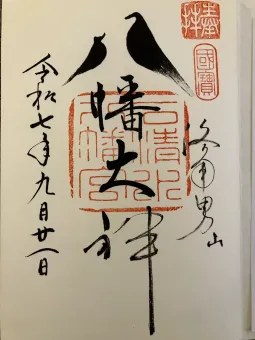 奉拝
國寶
洛南男山
八幡大神
石清水八幡宮
令和七年九月廿一日